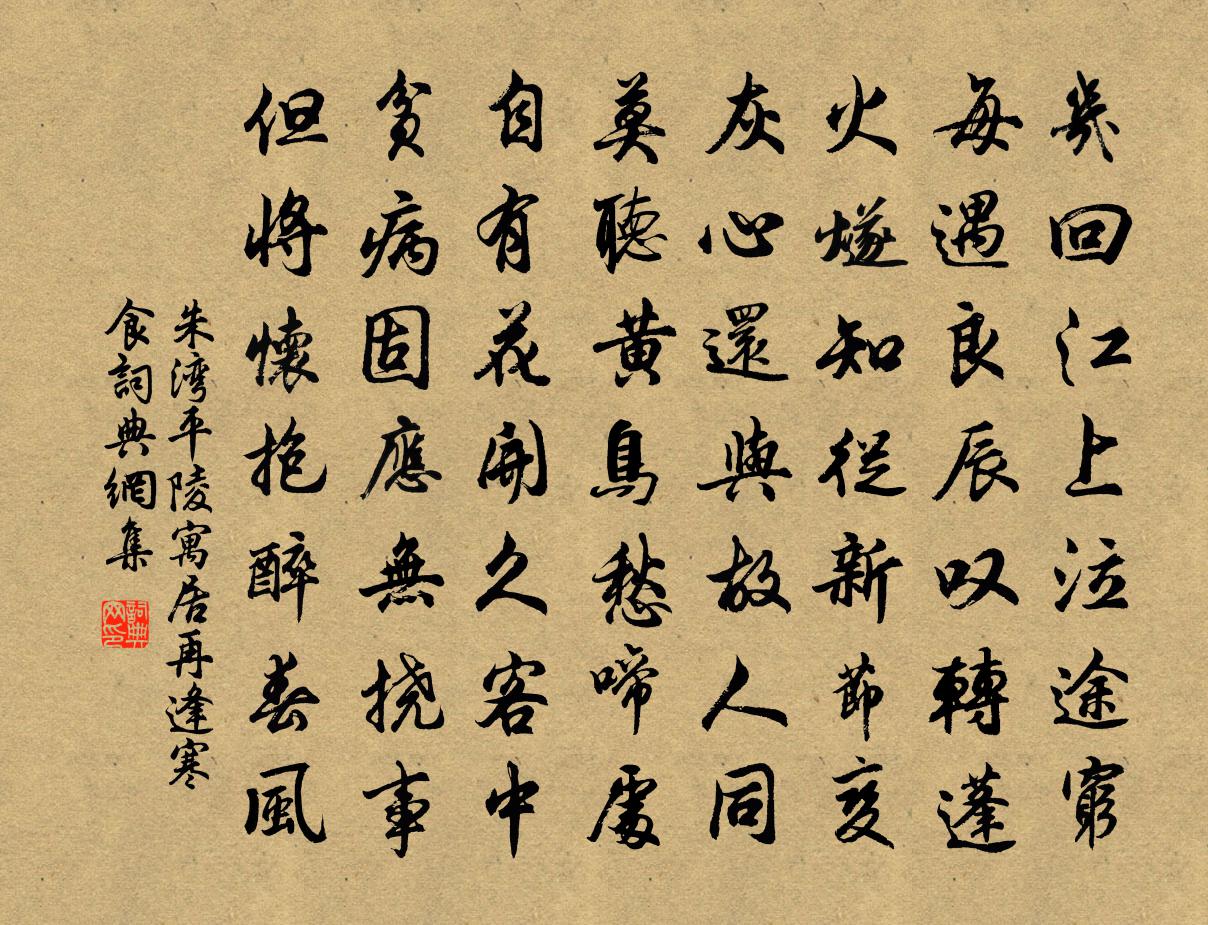 幾回江上泣途窮
每遇良辰叹轉蓬
火燧知從新節变
灰心還與故人同
莫聽黄鳥愁啼處
自有花開久客中
貧病固應無撓事
但將懷抱醉春風
朱湾平陵寓居再逢寒
食詞典網集
詞典网印